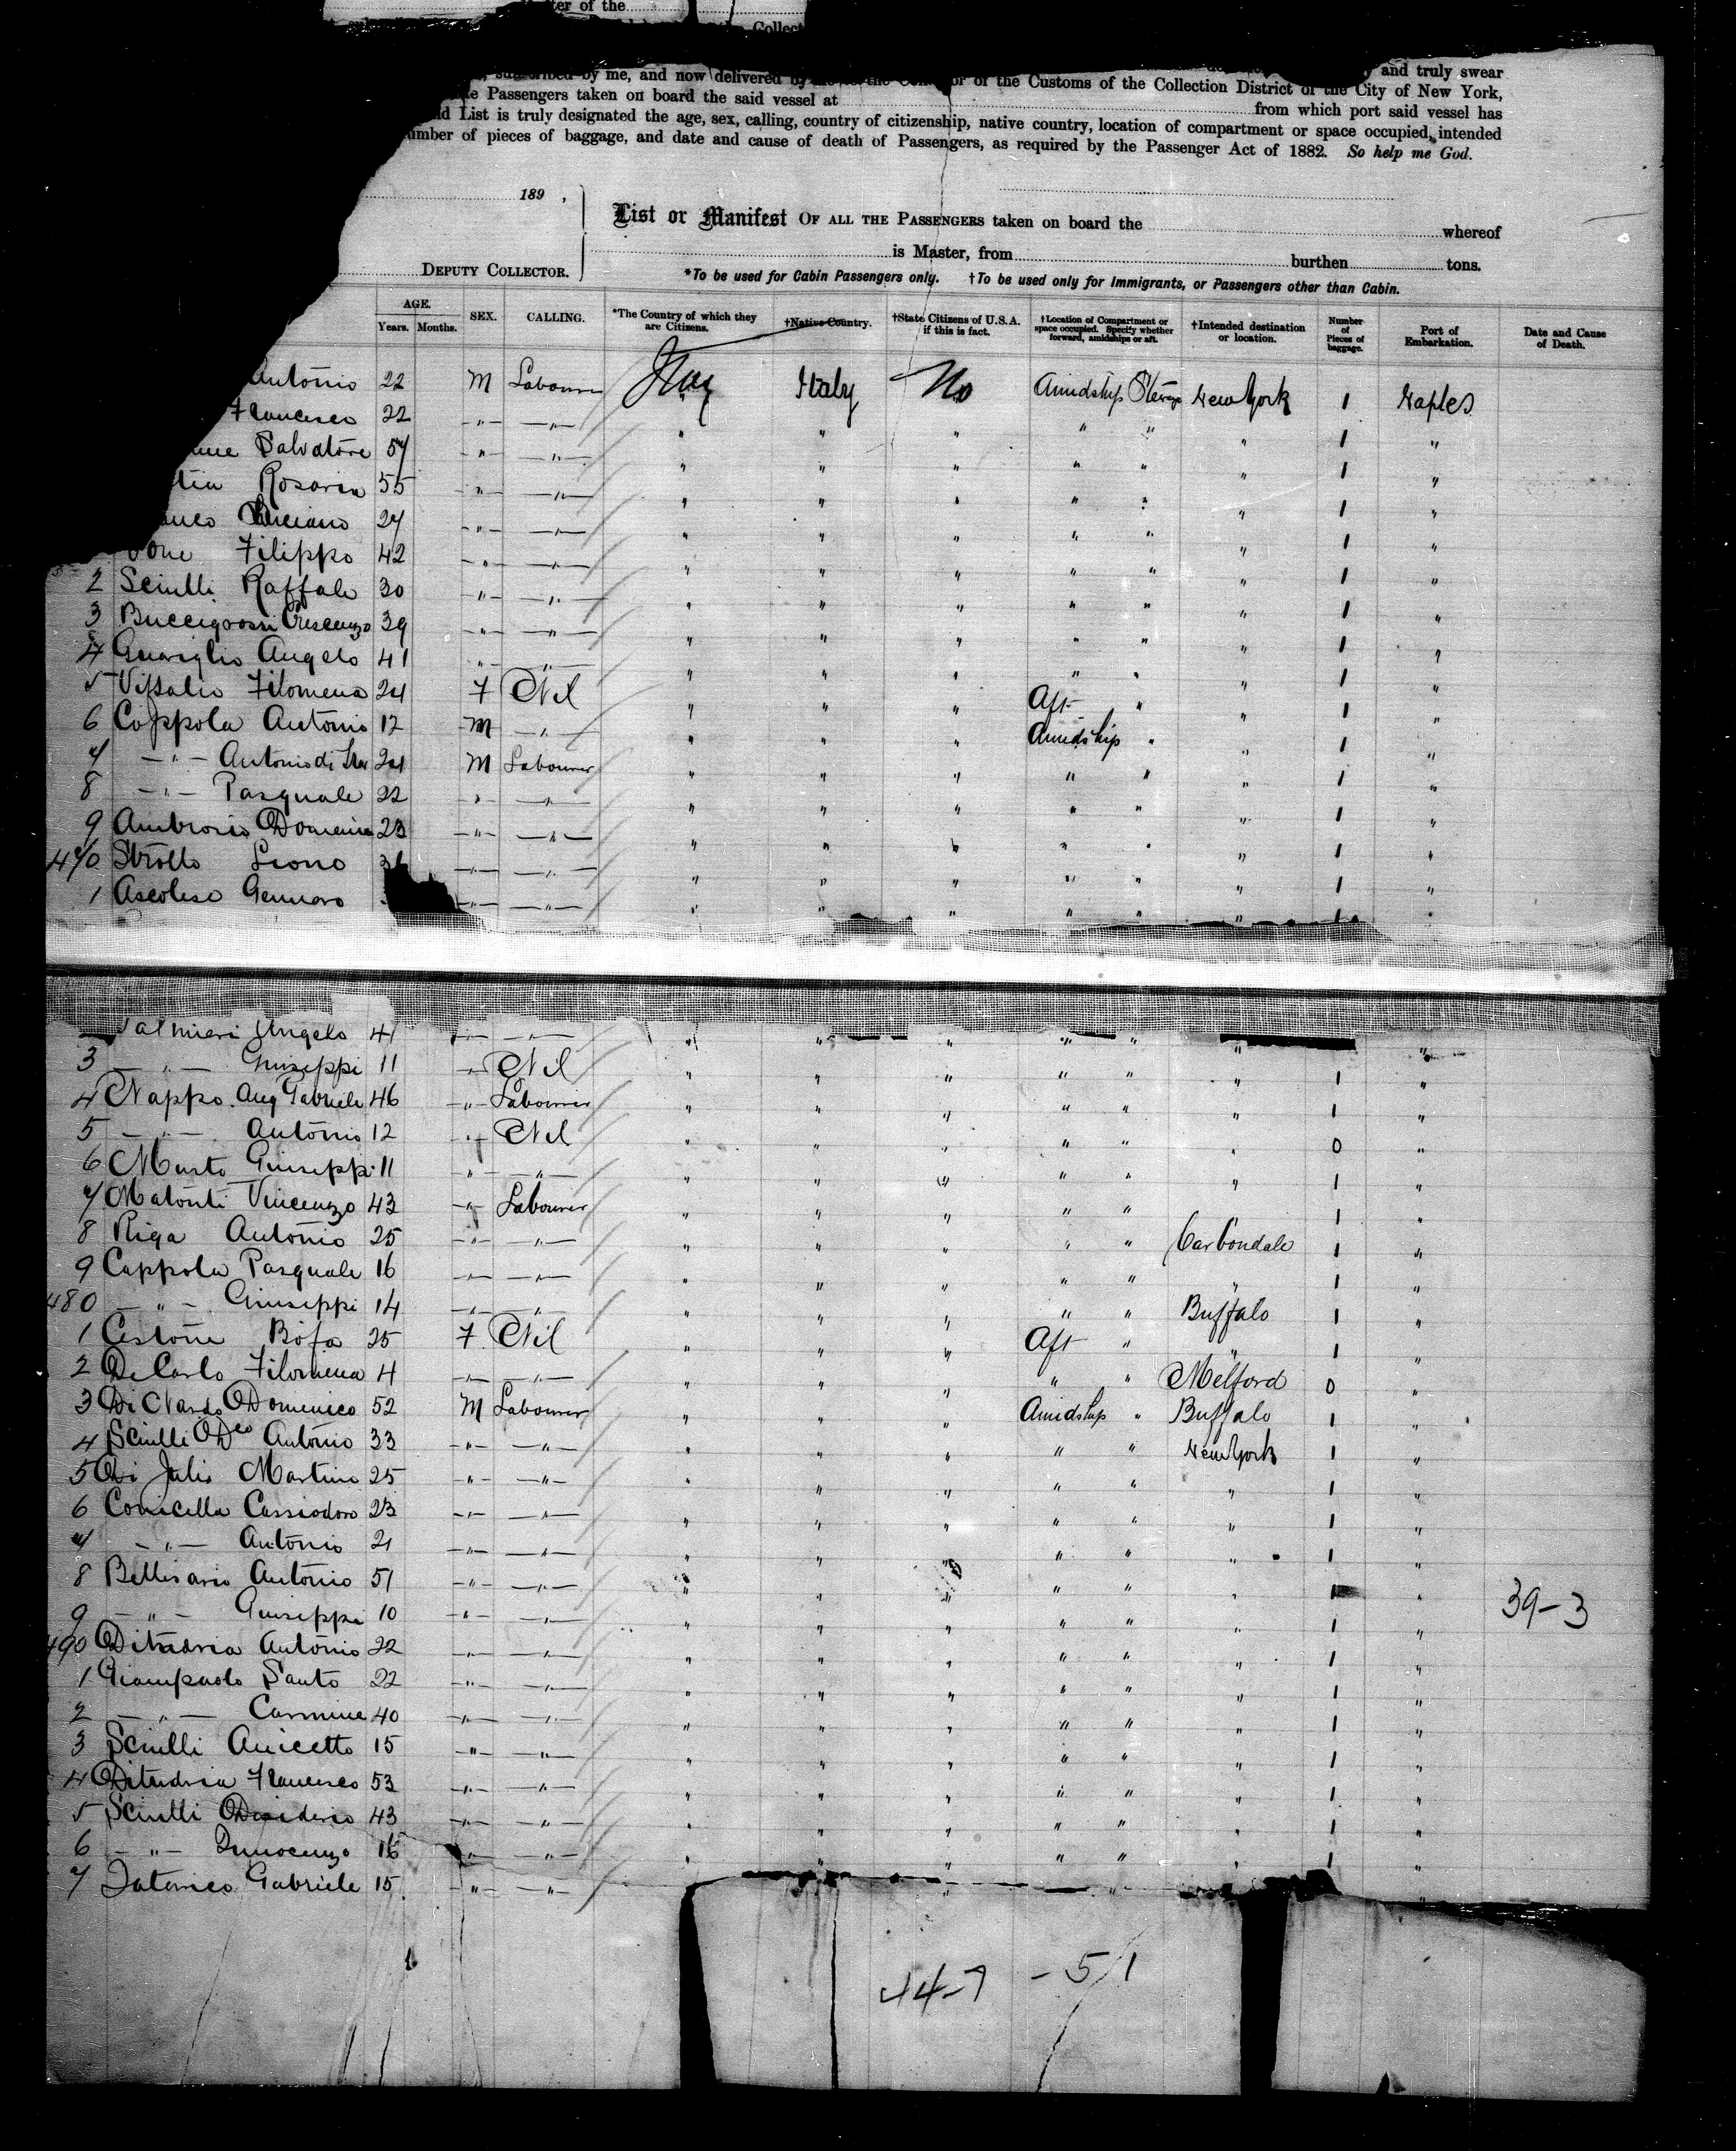 ter of the
Collect
subscribed by me, and now delivered by me to the Collector of the Customs of the Collection District of the City of New York, and truly swear
Passengers taken on board the said vessel at from which port said vessel has
List is truly designated the age, sex, calling, country of citizenship, native country, location of compartment or space occupied, intended
number of pieces of baggage, and date and cause of death of Passengers, as required by the Passenger Act of 1882. So help me God.
189 ,
List or Manifest OF ALL THE PASSENGERS taken on board the whereof
is Master, from burthen tons.
DEPUTY COLLECTOR.
*To be used for Cabin Passengers only. †To be used only for Immigrants, or Passengers other than Cabin.
AGE. Years. Months. SEX. CALLING. *The Country of which they are Citizens. †Native Country. †State Citizens of U.S.A. if this is fact. †Location of Compartment or space occupied. Specify whether forward, amidships or aft. †Intended destination or location. Number of Pieces of baggage. Port of Embarkation. Date and Cause of Death.
Antonio 22 M Labourer Italy Italy No Amidship Steerage New York 1 Naples
Francesco 22 " " " " " " " " 1 "
Salvatore 57 " " " " " " " " 1 "
Rosaria 55 " " " " " " " " 1 "
Luciano 27 " " " " " " " " 1 "
Filippo 42 " " " " " " " " 1 "
2 Sciulli Raffale 30 " " " " " " " " 1 "
3 Buccigrossi Crescenzo 39 " " " " " " " " 1 "
4 Guariglio Angelo 41 " " " " " " " " 1 "
5 Filomena 24 F Nil " " " Aft " " 1 "
6 Coppola Antonio 12 M " " " " Amidship " " 1 "
7 " Antonio di 24 M Labourer " " " " " " 1 "
8 " Pasquale 22 " " " " " " " " 1 "
9 Ambrosio Domenico 23 " " " " " " " " 1 "
470 Strollo Leone " " " " " " " " 1 "
1 Ascolese Gennaro " " " " " " " " 1 "
Palmieri Angelo 41 " " " " " " " " "
3 " Giuseppi 11 " Nil " " " " " " 1 "
4 Nappo Ang Gabriele 46 " Labourer " " " " " " 1 "
5 " Antonio 12 " Nil " " " " " " 0 "
6 Musto Giuseppi 11 " " " " " " " " 1 "
7 Matonti Vincenzo 43 " Labourer " " " " " " 1 "
8 Riga Antonio 25 " " " " " " " Carbondale 1 "
9 Cappola Pasquale 16 " " " " " " " " 1 "
480 " Giuseppi 14 " " " " " " " Buffalo 1 "
1 Cestone Rosa 25 F Nil " " " Aft " " 1 "
2 De Carlo Filomena 4 " " " " " " " Melford 0 "
3 Di Nardo Domenico 52 M Labourer " " " Amidship " Buffalo 1 "
4 Sciulli Dco Antonio 33 " " " " " " " New York 1 "
5 Di Julio Martino 25 " " " " " " " " 1 "
6 Conicella Cassiodoro 23 " " " " " " " " 1 "
7 " Antonio 21 " " " " " " " " 1 "
8 Bellisario Antonio 51 " " " " " " " " 1 "
9 " Giuseppe 10 " " " " " " " " 1 " 39-3
490 Antonio 22 " " " " " " " " 1 "
1 Giampaolo Santo 22 " " " " " " " " 1 "
2 " Carmine 40 " " " " " " " " 1 "
3 Sciulli Anicetto 15 " " " " " " " " 1 "
4 Francesco 53 " " " " " " " " 1 "
5 Sciulli Desiderio 43 " " " " " " " " 1 "
6 " Innocenzo 16 " " " " " " " " 1 "
7 Gabriele 15 " " " " "
447 - 511